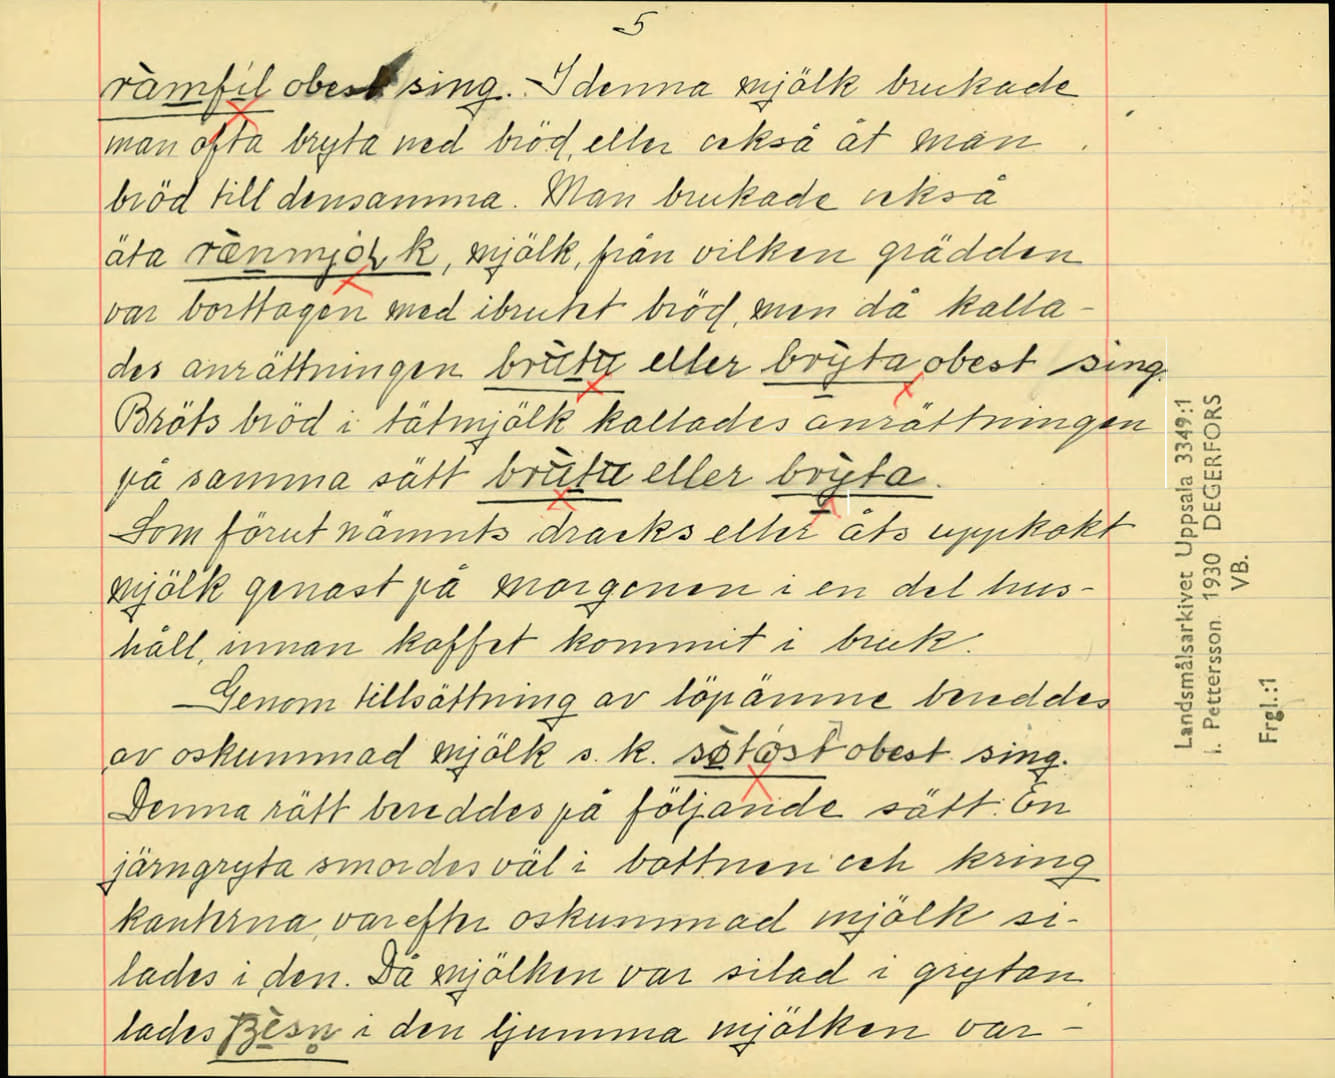 5
ràmfíl obest sing. I denna mjölk brukade
man ofta bryta ned bröd, eller också åt man
bröd till densamma. Man brukade också
äta rænmjòɫk, mjölk, från vilken grädden
var borttagen med ibrutet bröd, men då kalla-
des anrättningen brùtu eller bry̆ta obest sing.
Bröts bröd i tätmjölk kallades anrättningen
på samma sätt brùtu eller bry̆ta.
Som förut nämnts dracks eller åts uppkokt
mjölk genast på morgonen i en del hus-
håll, innan kaffet kommit i bruk.
Genom tillsättning av löpämne bereddes
av oskummad mjölk s. k. sø̀tóst obest sing.
Denna rätt bereddes på följande sätt: En
järngryta smordes väl i bottnen och kring
kanterna, varefter oskummad mjölk si-
lades i den. Då mjölken var silad i grytan
lades i den ljumma mjölken var-
Landsmålsarkivet Uppsala 3349:1
J. Pettersson. 1930 DEGERFORS
VB.
Frgl.:1